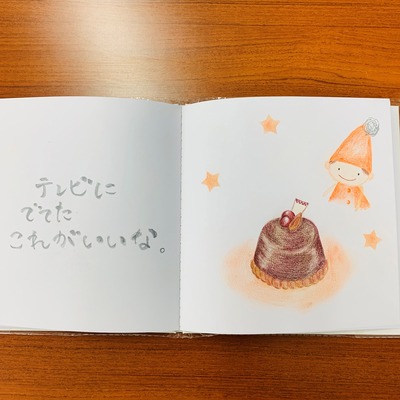 テレビに
でてた
これがいいな。